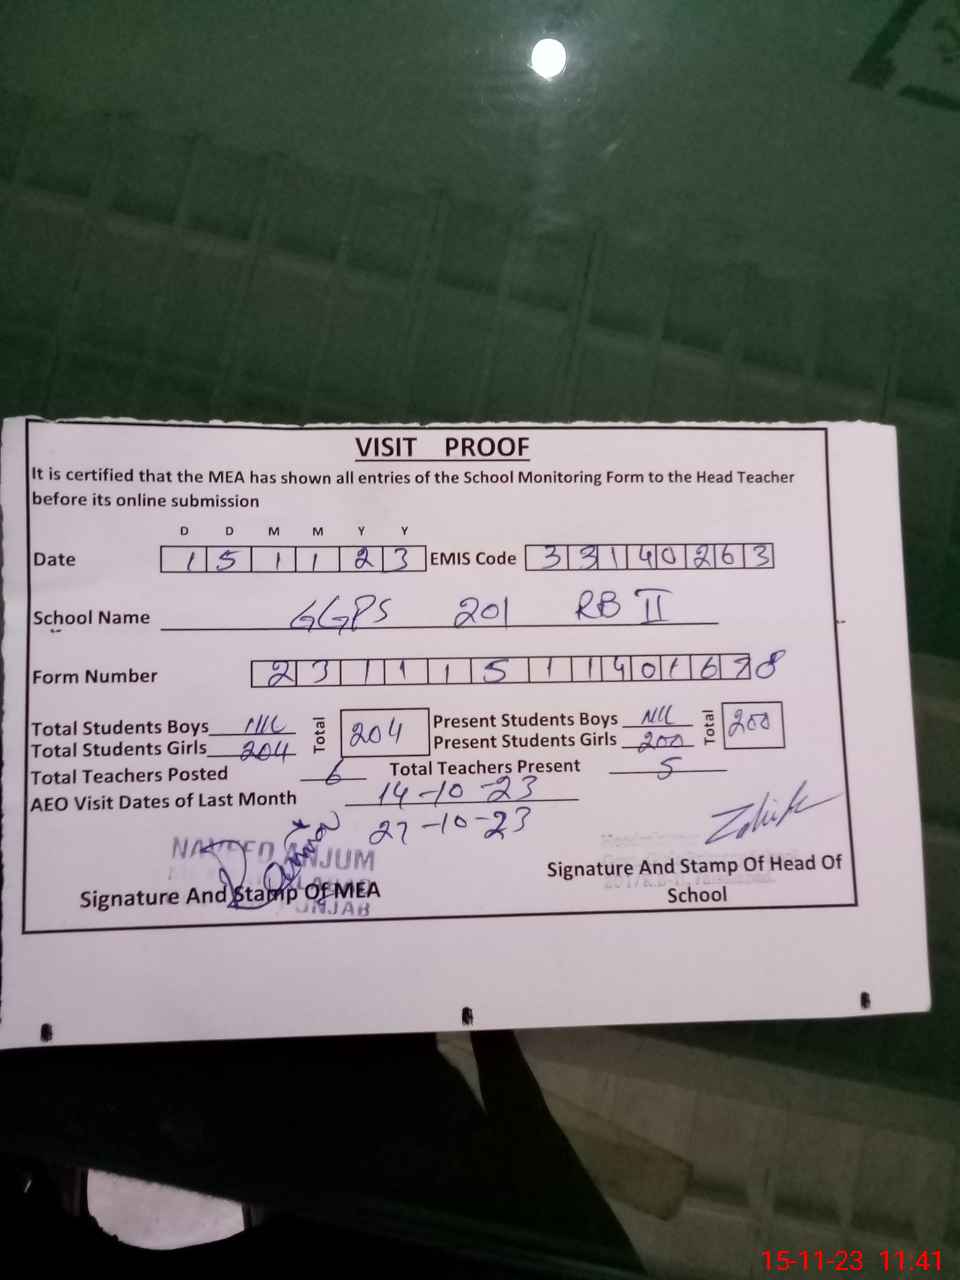 VISIT PROOF
It is certified that the MEA has shown all entries of the School Monitoring Form to the Head Teacher
before its online submission
D D M M Y Y
Date 1 5 1 1 2 3 EMIS Code 3 3 1 4 0 2 6 3
School Name GGPS 201 RB II
Form Number 2 3 1 1 1 5 1 1 4 0 1 6 7 8
Total Students Boys Nil Total 204 Present Students Boys Nil Total 200
Total Students Girls 204 Present Students Girls 200
Total Teachers Posted 6 Total Teachers Present 5
AEO Visit Dates of Last Month 14-10-23
27-10-23
NAVEED ANJUM
Signature And Stamp Of MEA
PUNJAB
Signature And Stamp Of Head Of
School
15-11-23 11.41